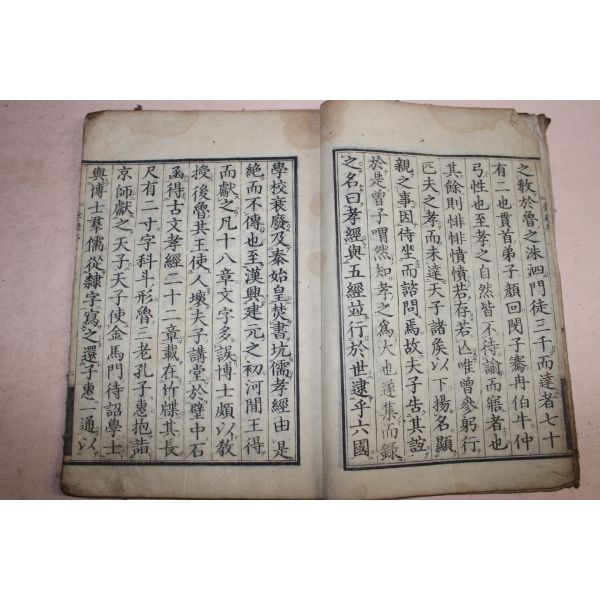 之教於魯之洙泗門徒三千而達者七十
有二也貫首弟子顏回閔子騫冉伯牛仲
弓性也至孝之自然皆不待諭而寤者也
其餘則悱悱憤憤若存若亾唯曾參躬行
匹夫之孝而未達天子諸矦以下揚名顯
親之事因侍坐而諮問焉故夫子告其誼
於是曾子喟然知孝之爲大也遂集而錄
之名曰孝經與五經並行於世逮乎六國
學校衰廢及秦始皇焚書坑儒孝經由是
絶而不傳也至漢興建元之初河間王得
而獻之凡十八章文字多誤博士頗以教
授後魯共王使人壞夫子講堂於壁中石
函得古文孝經二十二章載在竹牒其長
尺有二寸字科斗形魯三老孔子惠抱詣
京師獻之天子天子使金馬門待詔學士
與博士羣儒從隷字寫之還子惠一通以